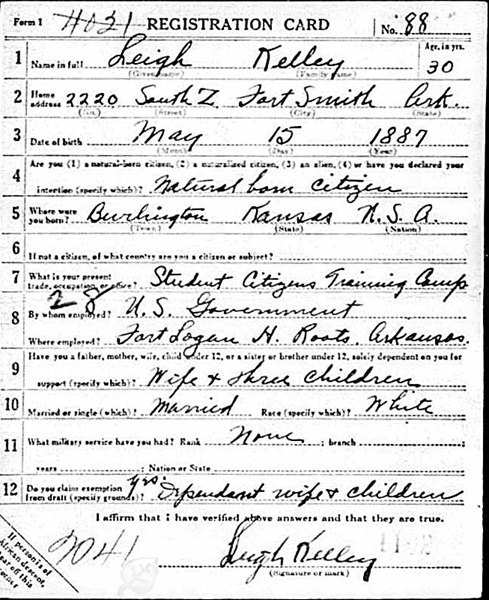 Form 1 REGISTRATION CARD No. 88
1 Name in full Leigh Kelley Age, in yrs. 30
(Given name) (Family name)
2 Home address 2220 South Z Fort Smith Ark.
(No.) (Street) (City) (State)
3 Date of birth May 15 1887
(Month) (Day) (Year)
4 Are you (1) a natural-born citizen, (2) a naturalized citizen, (3) an alien, (4) or have you declared your
intention (specify which)? Natural born citizen
5 Where were you born? Burlington Kansas U.S.A.
(Town) (State) (Nation)
6 If not a citizen, of what country are you a citizen or subject?
7 What is your present trade, occupation, or office? Student Citizens Training Camp
28
8 By whom employed? U.S. Government
Where employed? Fort Logan H. Roots, Arkansas.
9 Have you a father, mother, wife, child under 12, or a sister or brother under 12, solely dependent on you for
support (specify which)? Wife & three children
10 Married or single (which)? Married Race (specify which)? White
11 What military service have you had? Rank None ; branch ;
years ; Nation or State
12 Do you claim exemption from draft (specify grounds)? Yes. Dependant wife & children
I affirm that I have verified above answers and that they are true.
2041 Leigh Kelley
(Signature or mark)
If person is of
African descent,
tear off this
corner